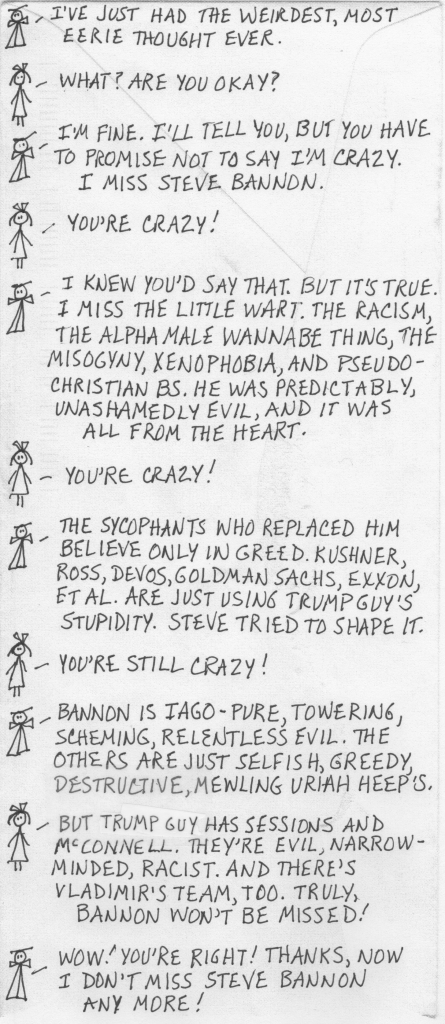 I'VE JUST HAD THE WEIRDEST, MOST
EERIE THOUGHT EVER.
WHAT? ARE YOU OKAY?
I'M FINE. I'LL TELL YOU, BUT YOU HAVE
TO PROMISE NOT TO SAY I'M CRAZY.
I MISS STEVE BANNON.
YOU'RE CRAZY!
I KNEW YOU'D SAY THAT. BUT IT'S TRUE.
I MISS THE LITTLE WART. THE RACISM,
THE ALPHA MALE WANNABE THING, THE
MISOGYNY, XENOPHOBIA, AND PSEUDO-
CHRISTIAN BS. HE WAS PREDICTABLY,
UNASHAMEDLY EVIL, AND IT WAS
ALL FROM THE HEART.
YOU'RE CRAZY!
THE SYCOPHANTS WHO REPLACED HIM
BELIEVE ONLY IN GREED. KUSHNER,
ROSS, DEVOS, GOLDMAN SACHS, EXXON,
ET AL. ARE JUST USING TRUMP GUY'S
STUPIDITY. STEVE TRIED TO SHAPE IT.
YOU'RE STILL CRAZY!
BANNON IS IAGO-PURE, TOWERING,
SCHEMING, RELENTLESS EVIL. THE
OTHERS ARE JUST SELFISH, GREEDY,
DESTRUCTIVE, MEWLING URIAH HEEP'S.
BUT TRUMP GUY HAS SESSIONS AND
MCCONNELL. THEY'RE EVIL, NARROW-
MINDED, RACIST. AND THERE'S
VLADIMIR'S TEAM, TOO. TRULY,
BANNON WON'T BE MISSED!
WOW! YOU'RE RIGHT! THANKS, NOW
I DON'T MISS STEVE BANNON
ANY MORE!